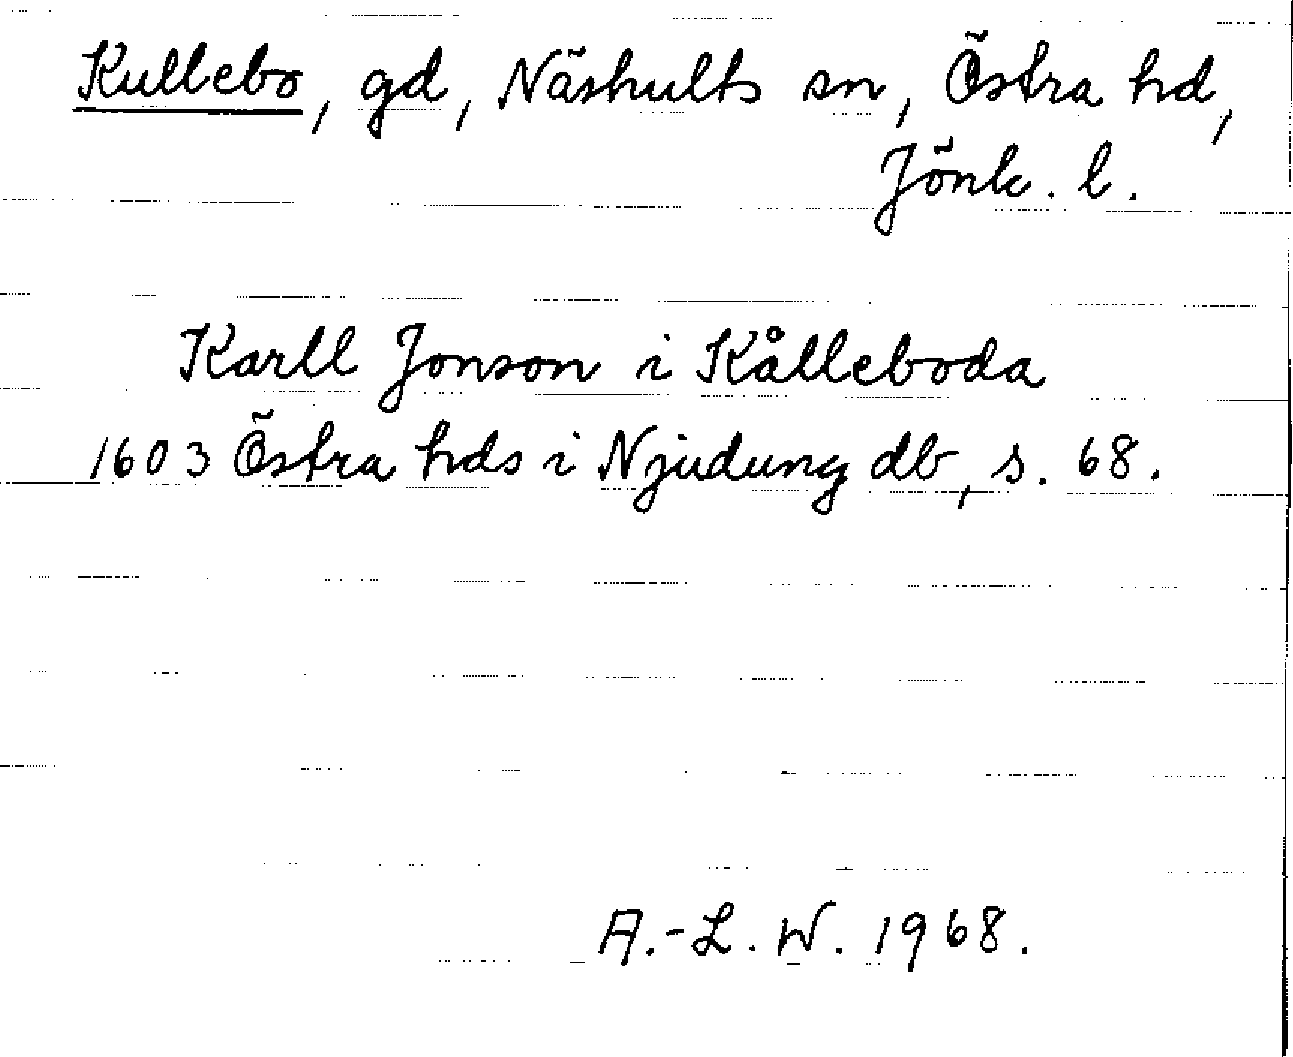 Kullebo, gd, Näshults sn, Östra hd,
Jönk. l.
Karll Jonson i Kålleboda
1603 Östra hds i Njudung db, s. 68.
A.-L. W. 1968.